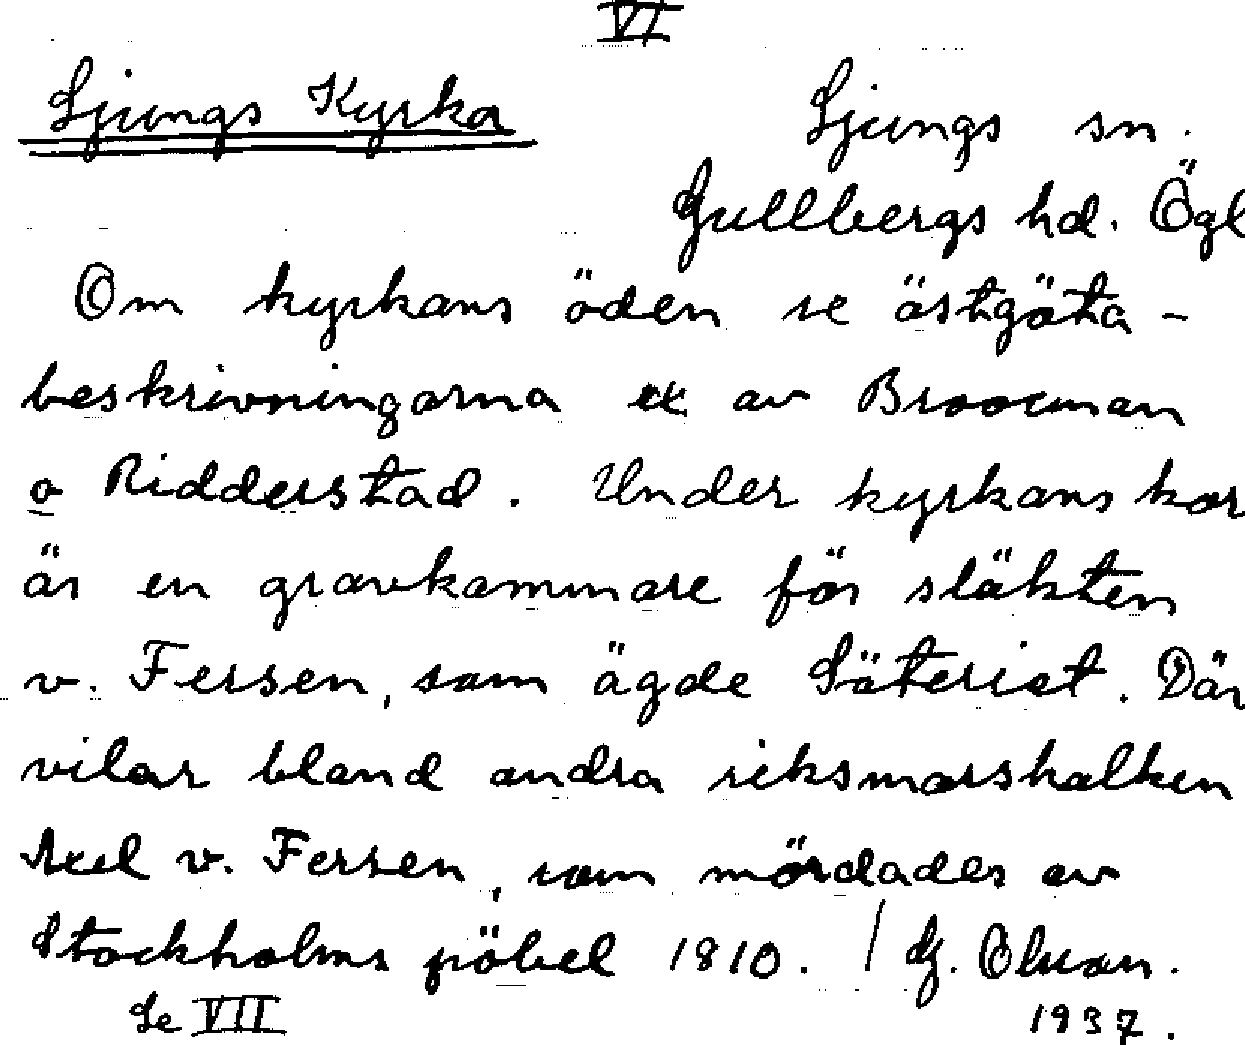 VI
Ljungs Kyrka
Ljungs sn.
Gullbergs hd. Ögl
Om kyrkans öden se östgöta-
beskrivningarna av Broocman
o Ridderstad. Under kyrkans kor
är en gravkammare för släkten
v. Fersen, som ägde Säteriet. Där
vilar bland andra riksmarskalken
Axel v. Fersen, som mördades av
Stockholms pöbel 1810. / G. Olsson.
Se VII
1937.